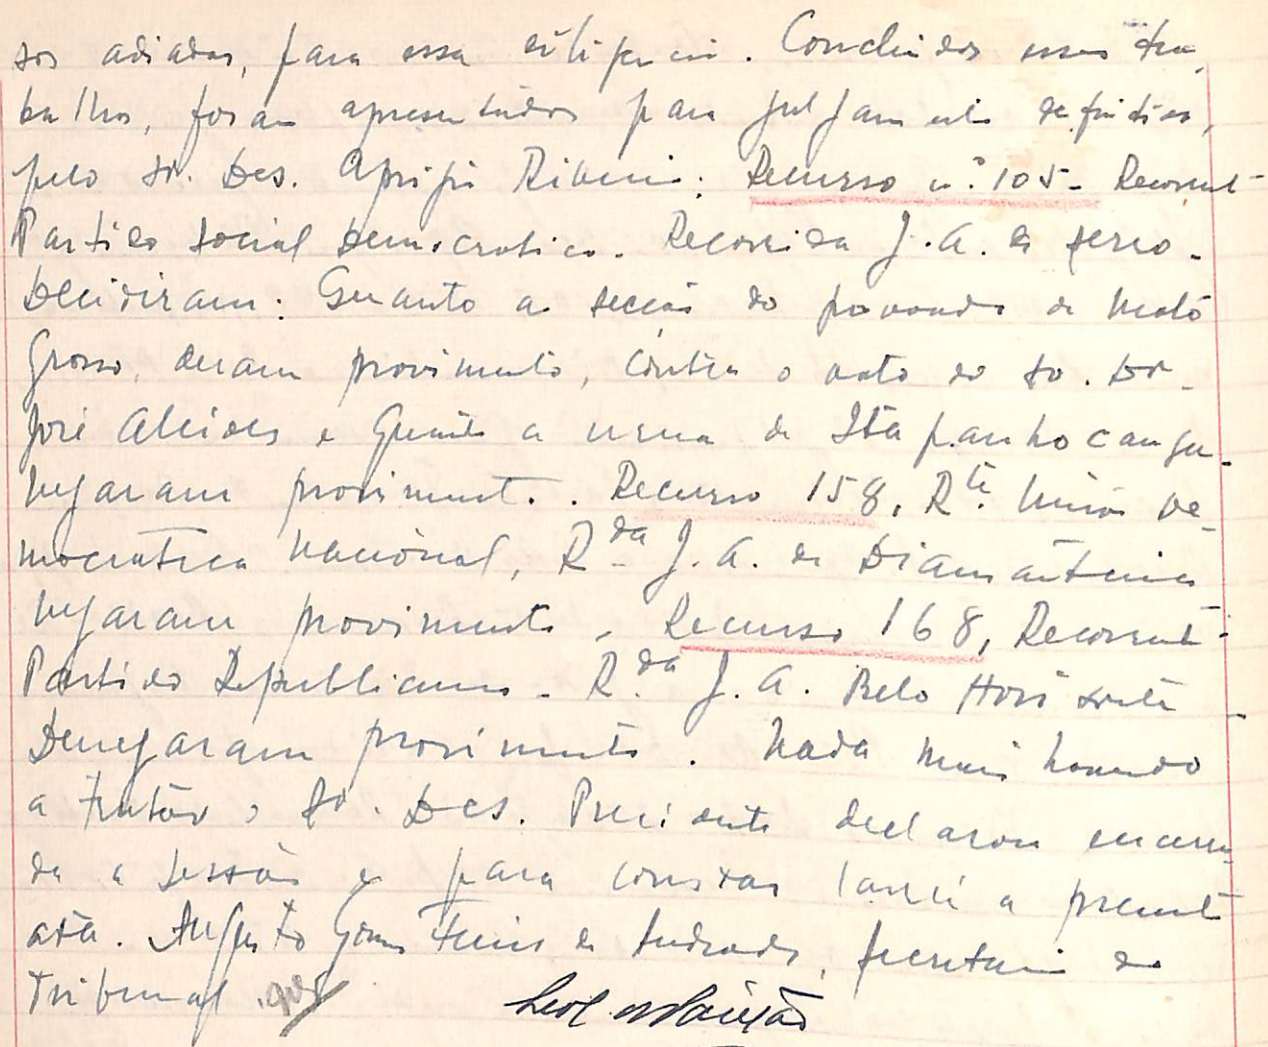 sos adiados, para essa diligencia. Concluidos esses tra-
balhos, foram apresentados para julgamento definitivo,
pelo sr. Des. Aprigio Ribeiro: Recurso n.º 105 - Recorrente
Partido Social Democratico. Recorrida J.A. do Serro -
Decidiram: Quanto a secção do povoado de Mato
Grosso, deram provimento, contra o voto do sr. Dr.
José Alcides e Quanto a urna de Itapanhoacanga
negaram provimento. Recurso 158, Rte. União De-
mocratica Nacional, Rda J.A. de Diamantina
negaram provimento - Recurso 168, Recorrente
Partido Republicano - Rda J.A. Belo Horizonte -
Denegaram provimento. Nada mais havendo
a tratar o Sr. Des. Presidente declarou encerra-
da a sessão e para constar lavrei a presente
ata. Augusto de Andrade, Secretario do
Tribunal